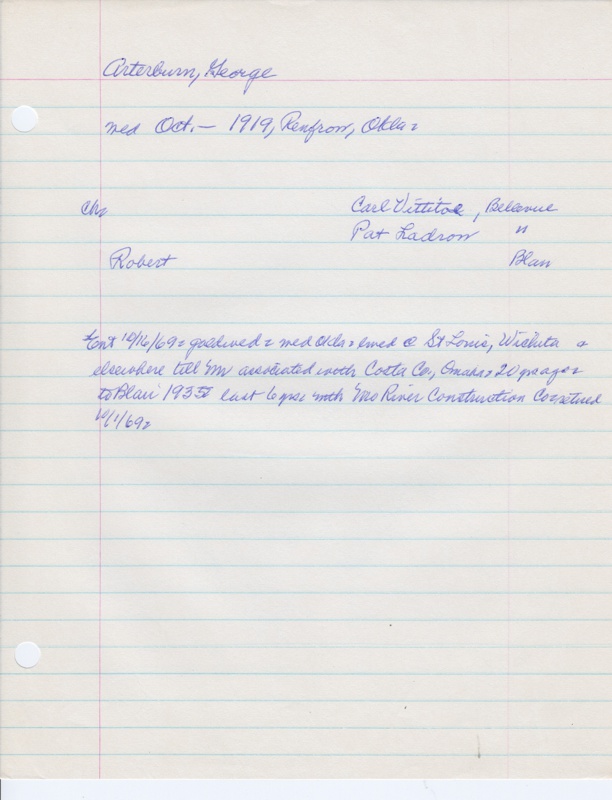 Arterburn, George
med Oct. — 1919, Renfrow, Okla=
ch= Carl Vittitoe, Bellevue
Pat Ladrow "
Robert Blair
Ent 10/16/69= goldwed= wed Okla= lived @ St Louis, Wichita &
elsewhere till Mr associated with Co, Omaha= 20 yrs ago=
to Blair last 6 yrs with Mo River Construction Co= retired
10/1/69=